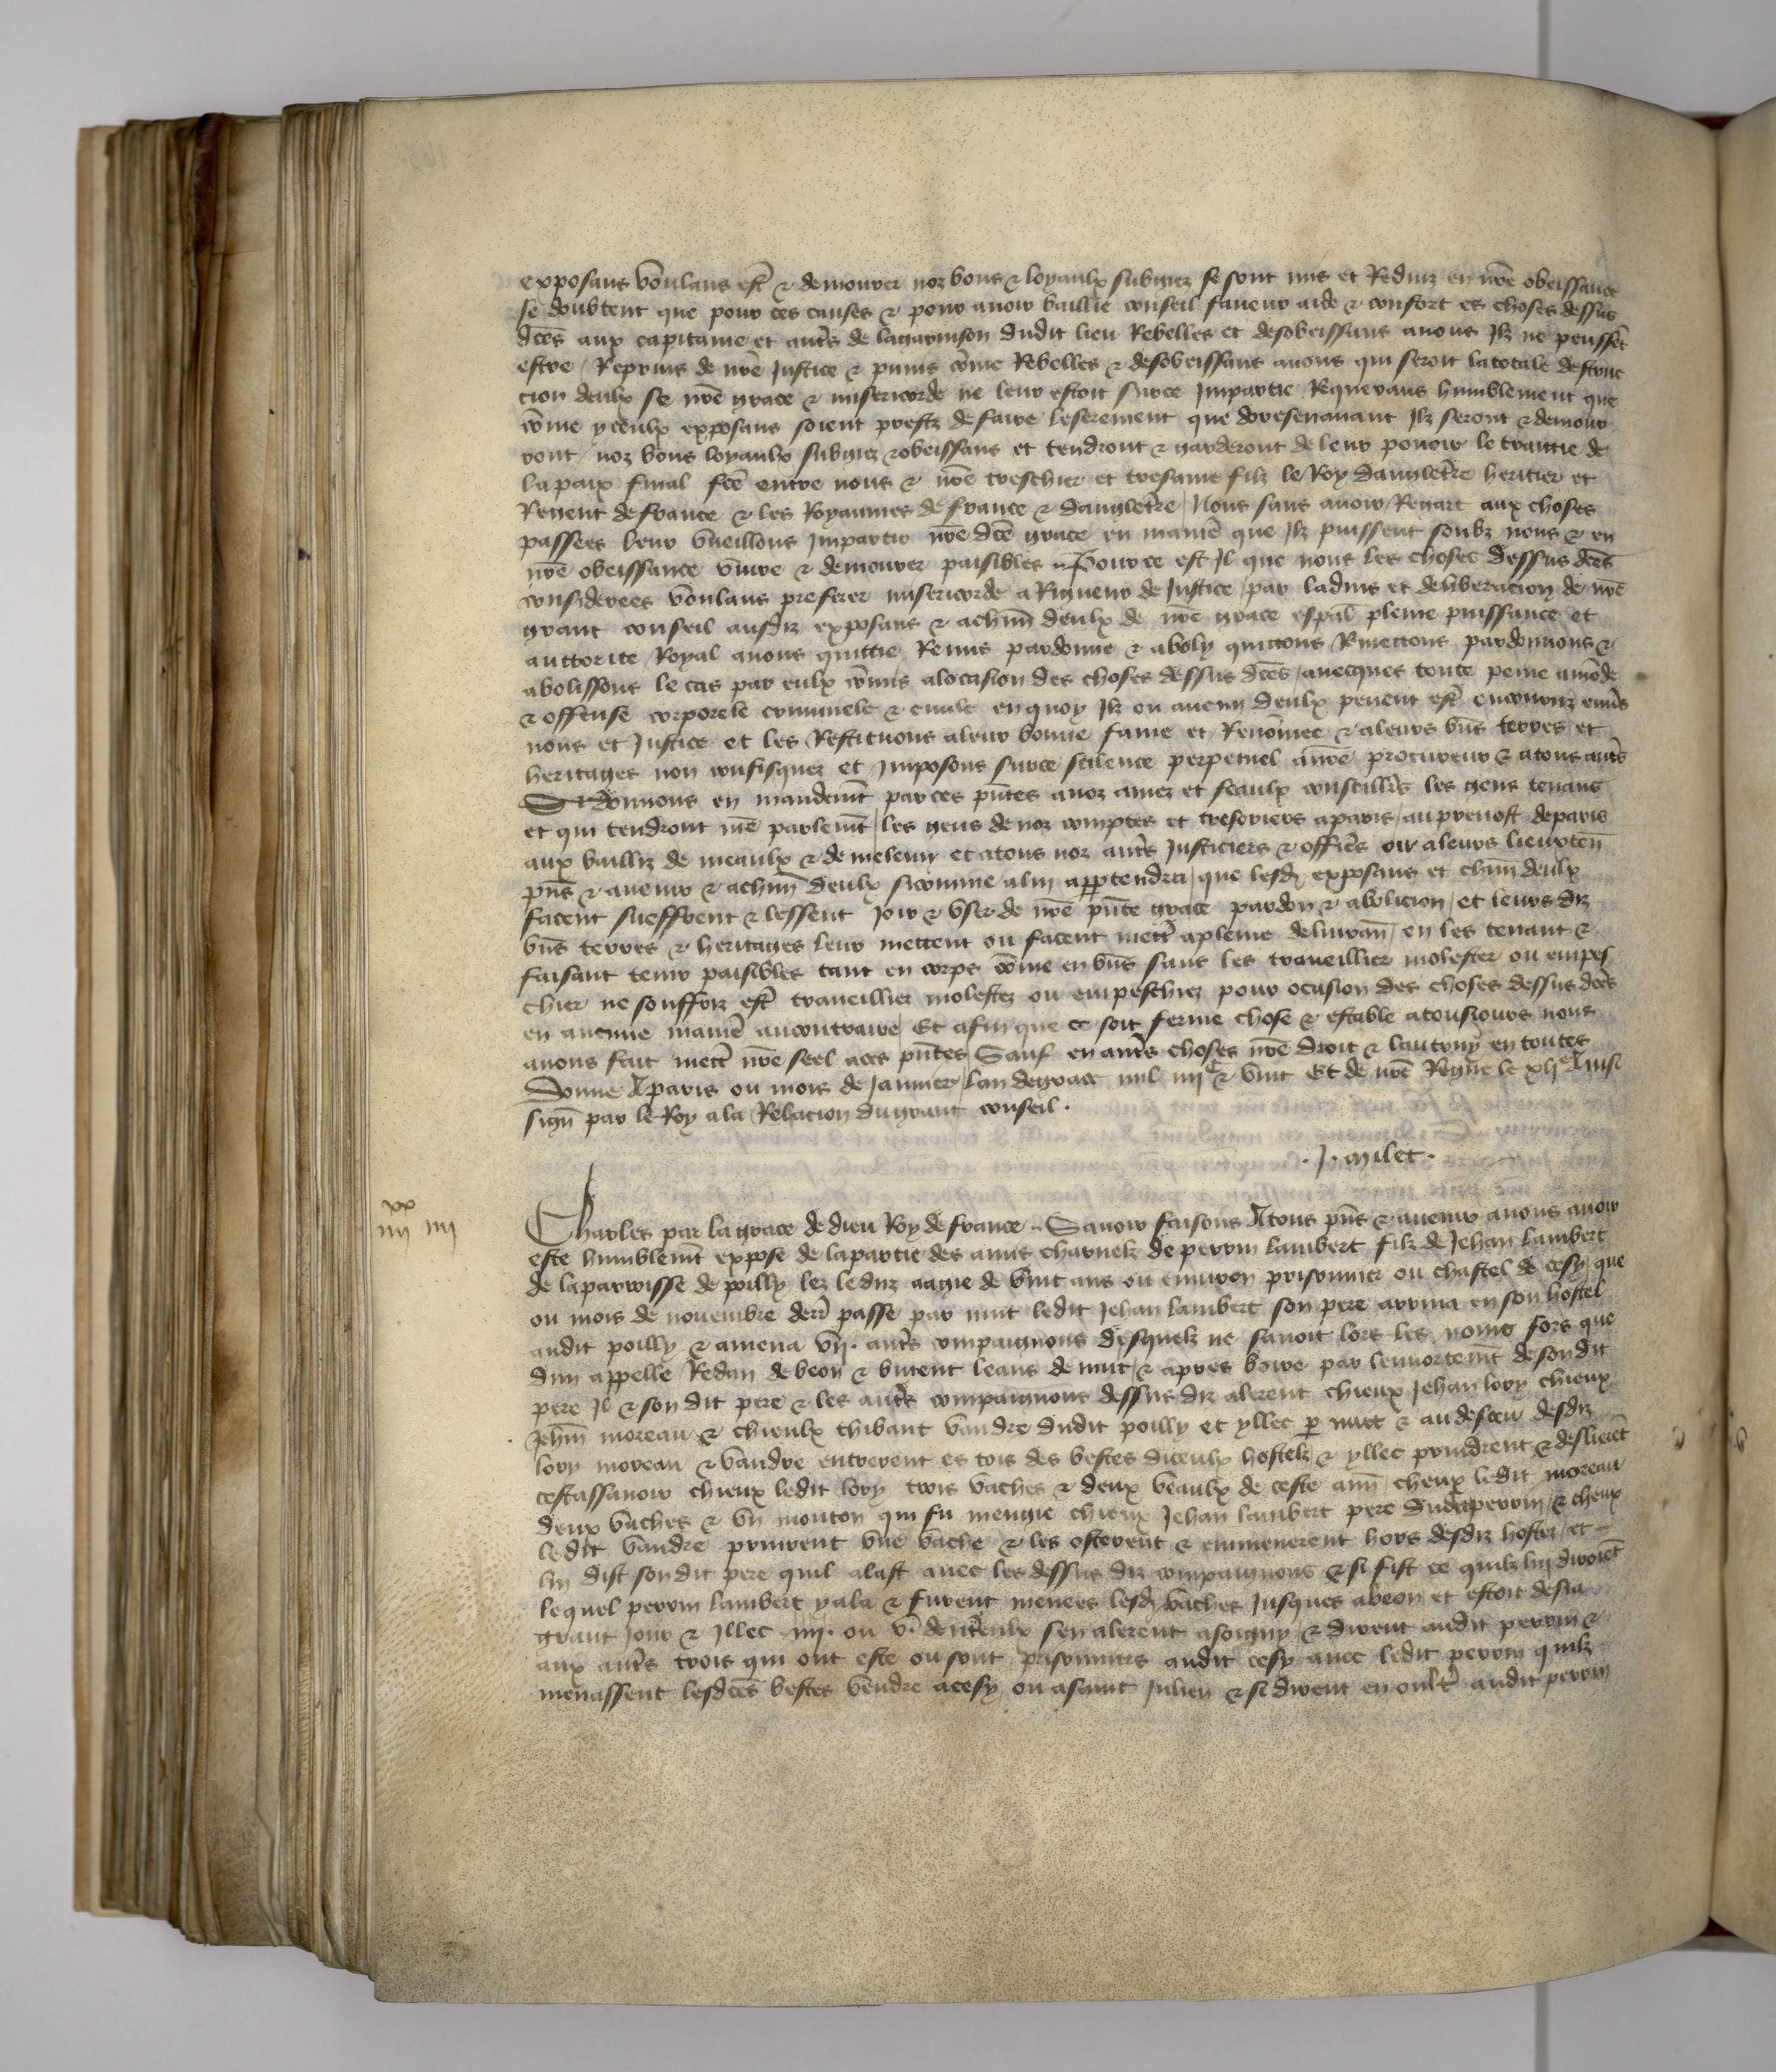 exposans voulans estre & demourer noz bons & loyaulx subgiez se sont mis et Reduiz en nre obeissance
se doubtent que pour ces causes & pour auoir baillie conseil faueur aide & confort es choses dessus
dces aux capitaine et autres de la garnison dudit lieu Rebelles et desobeissans a nous Ilz ne peussent
estre Reprins de nre Justice & punis come Rebelles & desobeissans a nous qui seroit la totale destruc
cion deulx se nre grace & misericorde ne leur estoit sur ce Impartie Requerans humblement que
come yceulx exposans soient prestz de faire le serement que doresenauant Ilz seront & demour
ront noz bons loyaulx subgiez & obeissans et tendront & garderont de leur pouoir le traittie de
la paix final fce entre nous & nre treschier et tresame filz le Roy dangletre heritier et
Regent de france & les Royaumes de france & dangletre Nous sans auoir Regart aux choses
passees leur vueillons Impartir nre dce grace en manie que Ilz puissent soubz nous & en
nre obeissance viure & demourer paisibles Pour ce est Il que nous les choses dessus dces
considerees voulans preferer misericorde a Rigueur de Justice par laduis et deliberacion de nre
grant conseil ausdiz exposans & a chun deulx de nre grace espal pleine puissance et
auttorite Royal auons quittie Remis pardonne & aboly quittons Remettons pardonnons &
abolissons le cas par eulx comis a locasion des choses dessus dces auecques toute peine amende
& offense corporele criminele & ciuile en quoy Ilz ou aucun deulx peuent estre encouruz enuers
nous et Justice et les Restituons a leur bonne fame et Renomee & a leurs bns terres et
heritages non confisquez et Imposons sur ce scilence perpetuel a nre procureur & a tous autres
Si donnons en mandemt par ces pntes a noz amez et feaulx conseillers les gens tenans
et qui tendront nre parlemt les gens de noz comptes et tresoriers a paris au preuost de paris
aux bailliz de meaulx & de meleun et a tous noz autres Justiciers & officers ou a leurs lieuxten
pns & auenir & a chun deulx si comme a lui appartendra que lesd exposans et chun deulx
facent sueffrent & lessent Joir & vser de nre pnte grace pardon & abolicion et leurs diz
bns terres & heritages leur mettent ou facent mettre a pleine deliuran en les tenant &
faisant tenir paisibles tant en corps come en bns sans les traueillier molester ou empes
chier ne souffrir estre traueilliez molestez ou empeschiez pour ocasion des choses dessus dces
en aucune manie au contraire Et afin que ce soit ferme chose & estable a tousiours nous
auons fait mettre nre seel a ces pntes Sauf en autres choses nre droit & lautruy en toutes
Donne A paris ou mois de Januier lan de grace mil iiijc & vint Et de nre Regne le xlj Ainsi
sign par le Roy a la Relacion du grant conseil .
. J . milet .
xx
iiij iiij
Charles par la grace de dieu Roy de france Sauoir faisons A tous pns & auenir a nous auoir
este humblemt expose de la partie des amis charnelz de perrin lambert filz de Jehan lambert
de la parroisse de poilly lez leduz aagie de vint ans ou enuiron prisonnier ou chastel de cesy que
ou mois de nouembre derr passe par nuit ledit Jehan lambert son pere arriua en son hostel
audit poilly & amena vij . autres compaignons desquelz ne sauoit lors les noms fors que
dun appelle Redan de beon & burent leans de nuit & apres boire par lennortemt de son dit
pere Il & son dit pere & les autres compaignons dessus diz alerent chieux Jehan lory chieux
Jehm moreau & chieulx thibaut vandre dudit poilly et yllec par nuit & au desceu desdiz
lory moreau & vandre entrerent es tois des bestes diceulx hostelz & yllec prindrent & deslieret
cest assauoir chieux ledit lory trois vaches & deux veaulx de ceste ann cheux ledit moreau
deux vaches & vn mouton qui fu mengie chieux Jehan lambert pere dudit perrin & cheux
ledit vandre prinrent vne vache & les osterent & emmenerent hors desdiz hostez et
lui dist son dit pere quil alast auec les dessus diz compaignons & si fist ce quilz lui diroiet
lequel perrin lambert y ala & furent menees lesd vaches Jusques a beon et estoit desia
grant Jour & Illec iiij . ou v . dentreulx sen alerent a soigny & dirent audit perrin &
aux autres trois qui ont este ou sont prisonniers audit cesy auec ledit perrin quilz
menassent lesdces bestes vendre a cesy ou a saint Julien & si dirent en oultre audit perrin